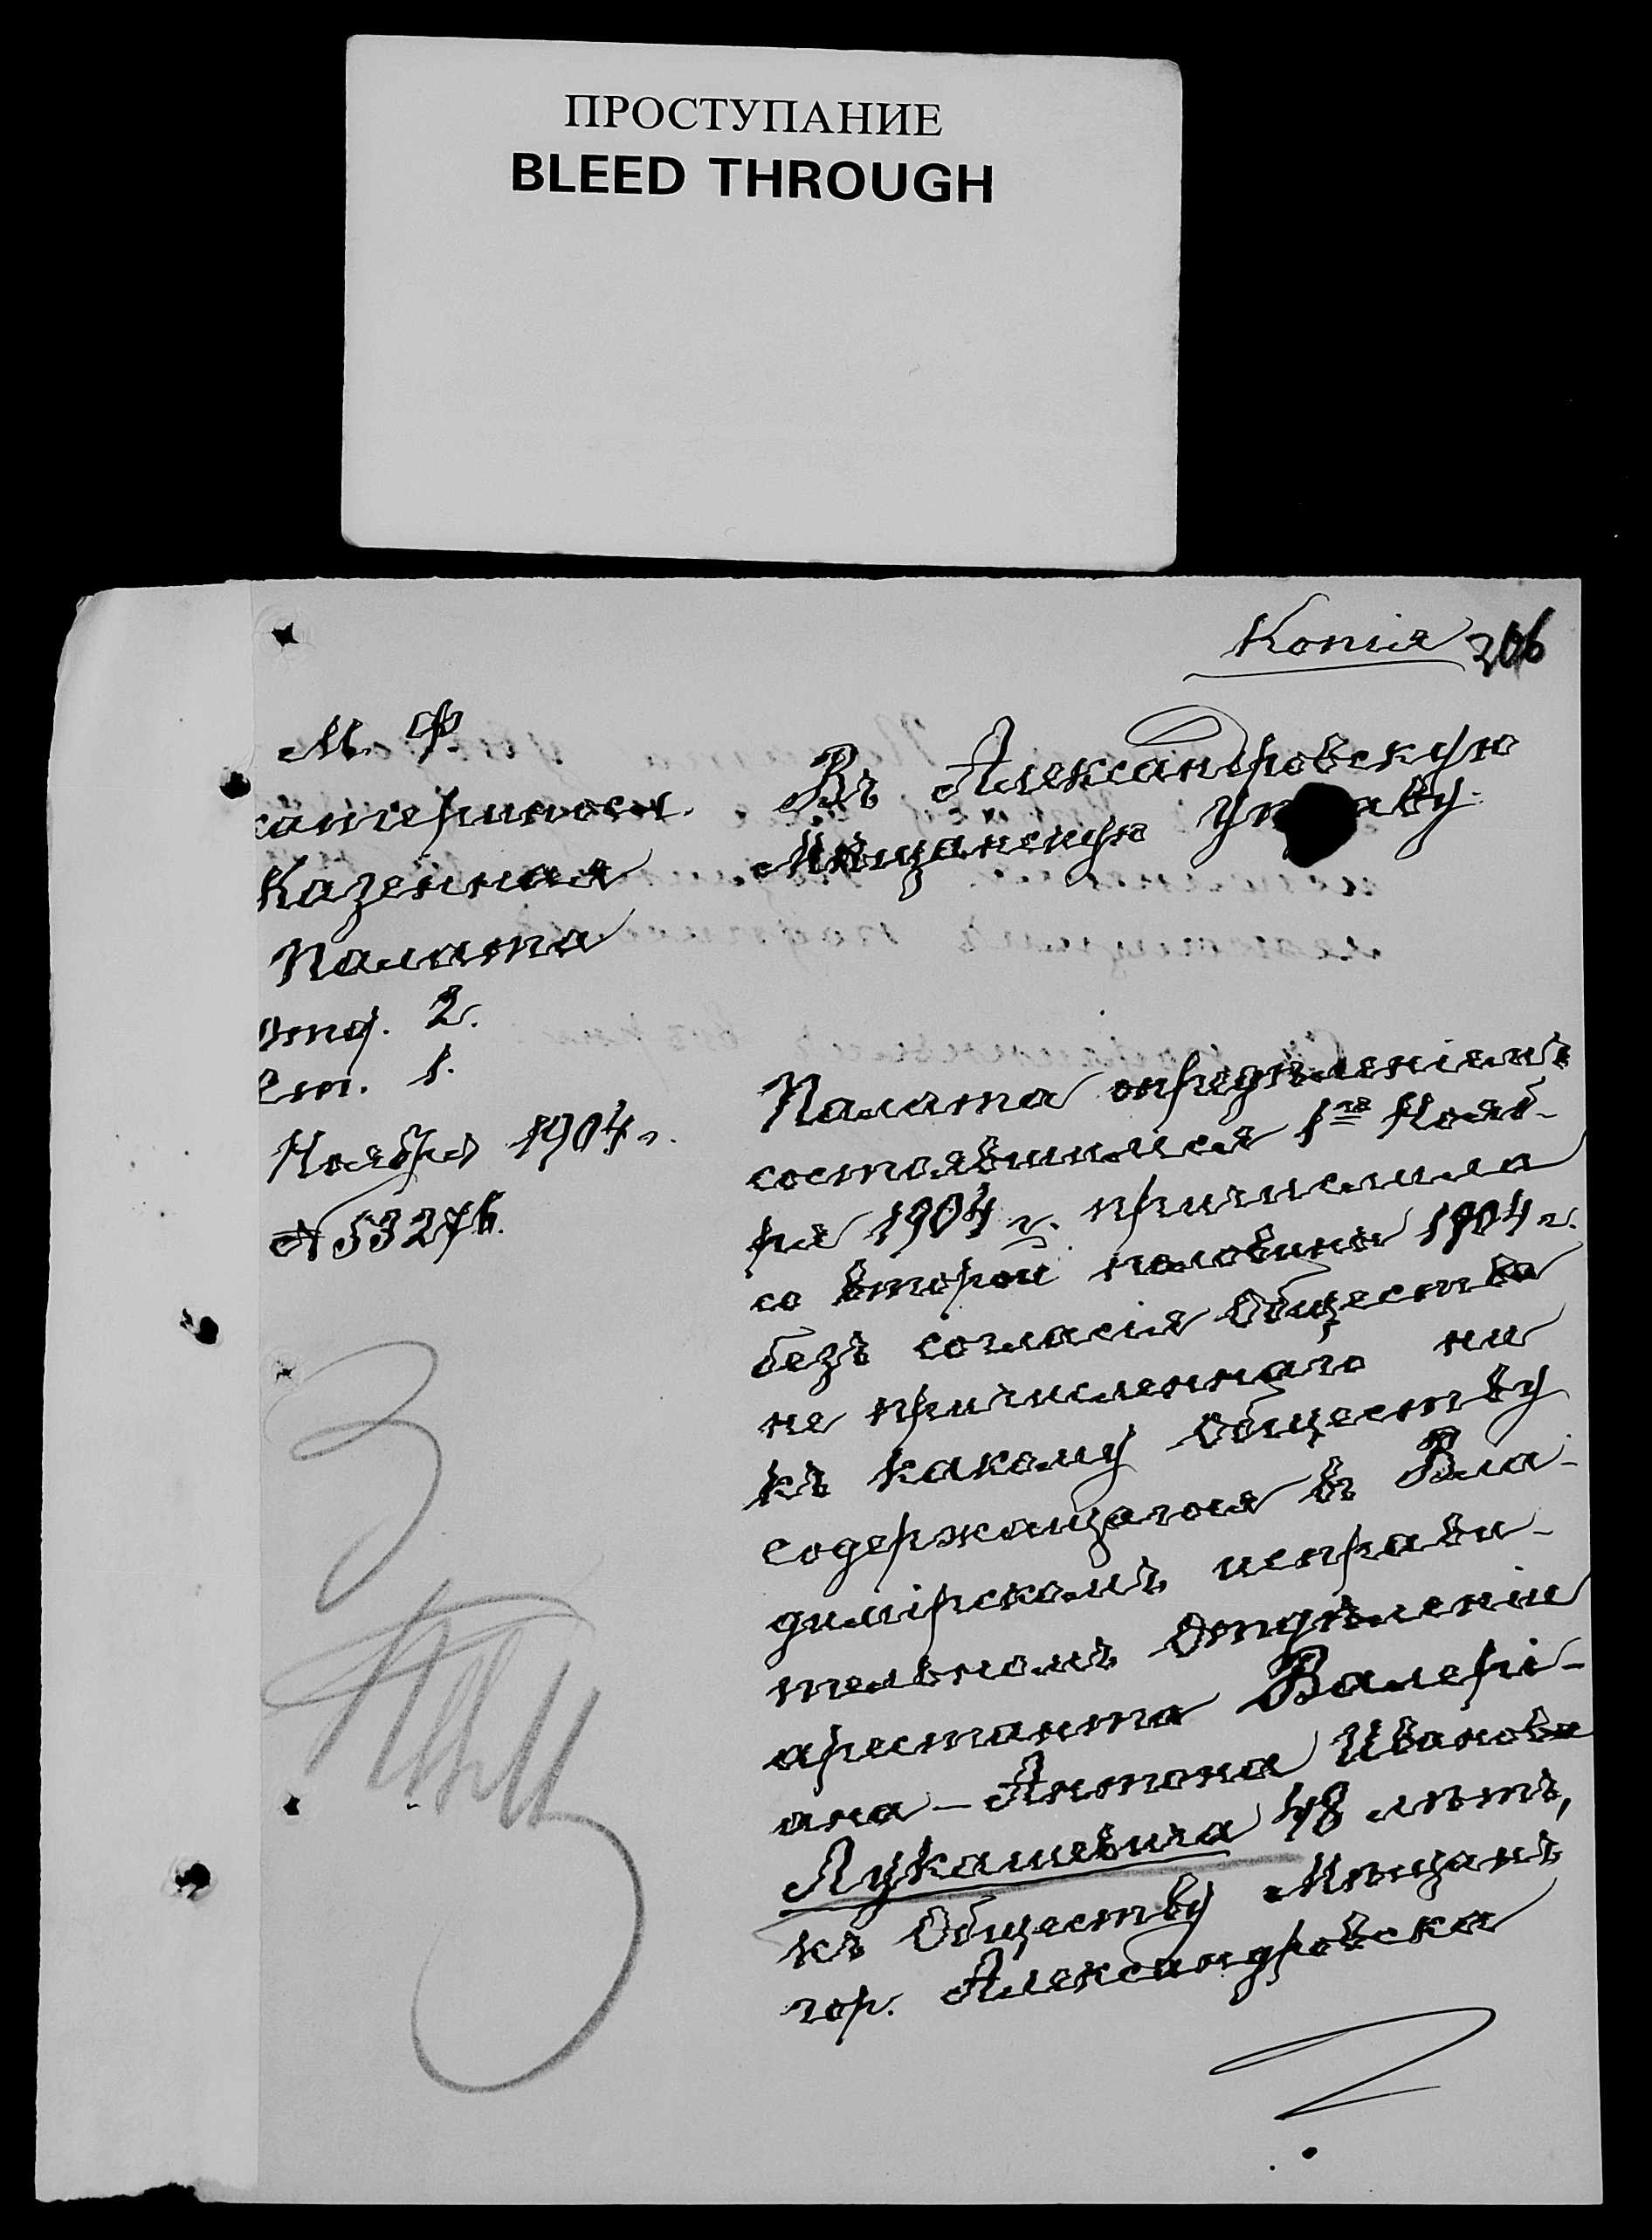 ПРОСТУПАНИЕ
BLEED THROUGH
Копія 206
М. Ф.
Казенная
Палата
Отд. 2.
Ст. 1.
Ноября 1904 г.
№ 53276.
Въ Александровскую
Мѣщанскую Уп аву
Палата опредѣленіемъ
состоявшимся 1го Нояб-
ря 1904 г. причислила
со второй половины 1904 г.
безъ согласія Общества
не причисленнаго ни
къ какому Обществу
содержащагося въ Вла-
димірскомъ исправи-
тельномъ Отдѣленіи
арестанта Валері-
ана-Антона Иванова
Лукашевича 48 лѣтъ,
къ Обществу Мѣщанъ
гор. Александровска